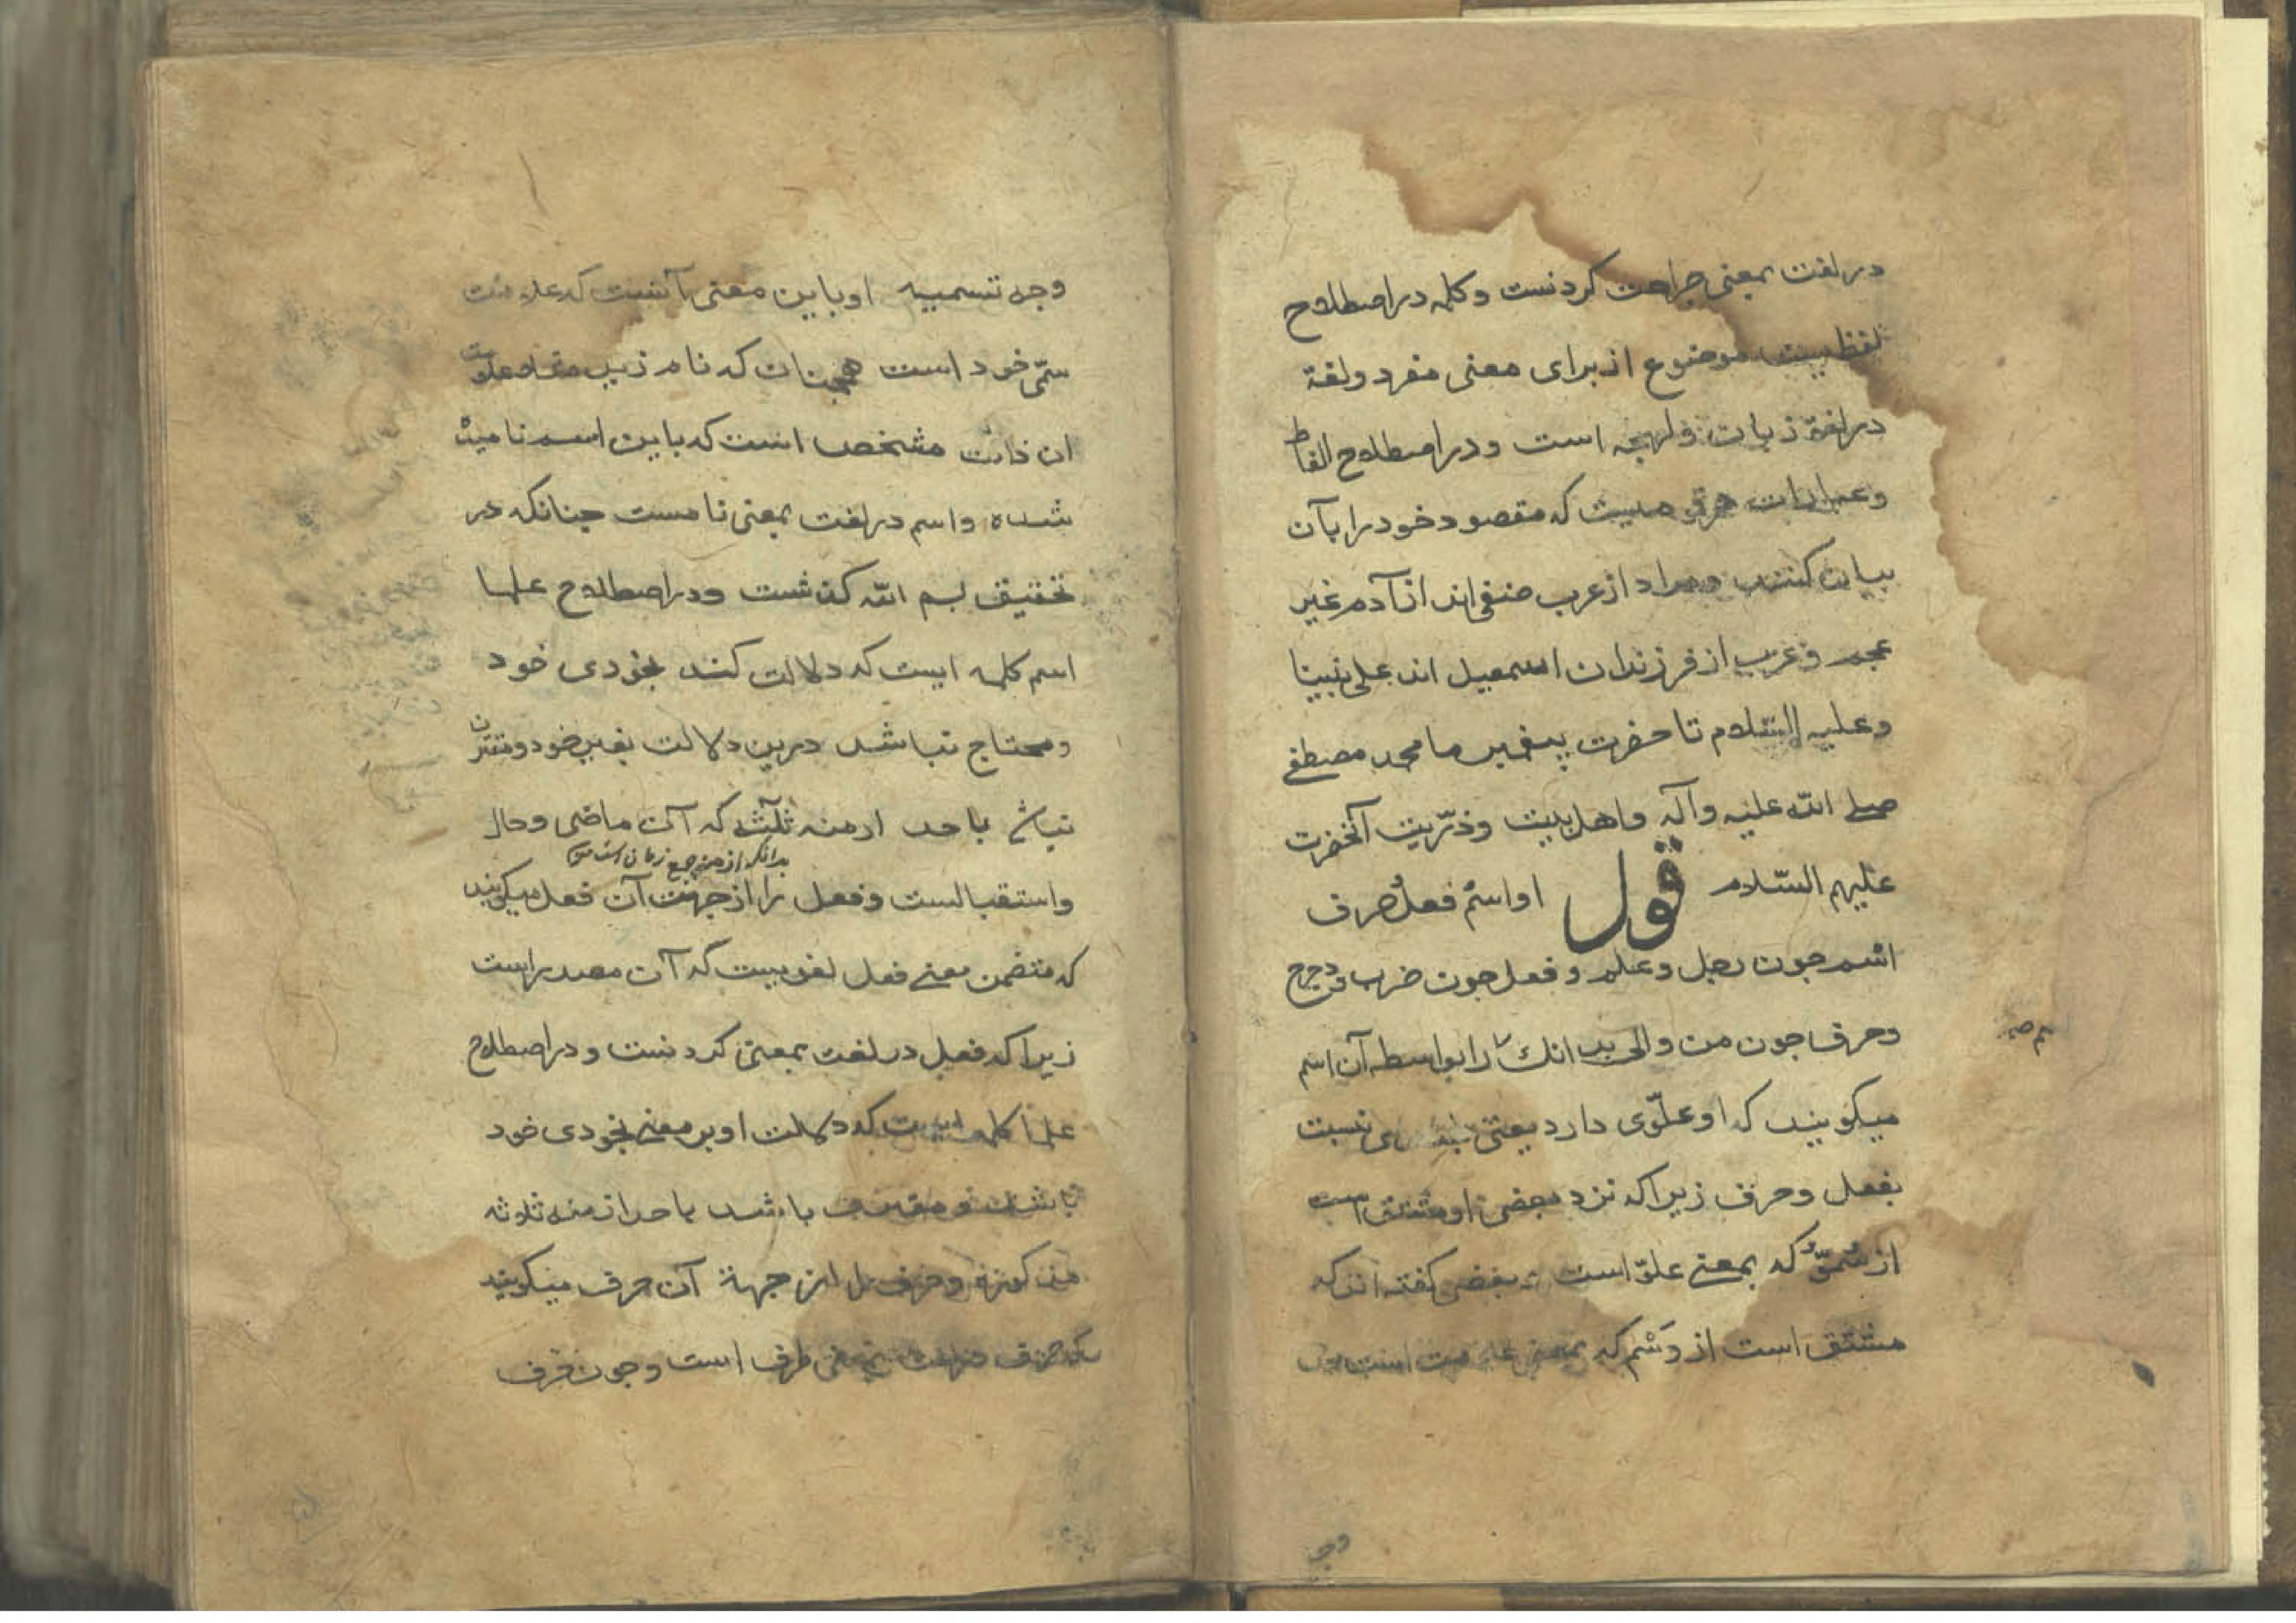 در لغت بمعنی جراحت کردنست وکلمه در اصطلاح
لفظیست موضوع از برای معنی مفرد ولغة
در لغة زبان ولهجه است ودر اصطلاح الفاظ
وعبارات هر قومیست که مقصود خود را بآن
بیان کنند ومراد از عرب صنفی اند از آدم غیر
عجم وعرب از فرزندان اسمعیل اند علی نبینا
وعلیه السّلام تا حضرت پیغمبر ما محمد مصطفی
صلے اللّه علیه وآله واهل بیت وذرّیت آنحضرت
علیهم السّلام قول او اسم فعل حرف
اسم جون رجل وعلم وفعل جون ضرب ودحرج
وحرف جون من والی بدانک را بواسطه آن اسم
میکویند که او علوّی دارد یعنی نسبت
بفعل وحرف زیرا که نزد بعضی او مشتق است
از سُمُوّ که بمعنے علوّ است بعضی کفته اند که
مشتق است از وَسْم که بمعنی علامت است
وجه
وجه تسمیه او باین معنی آنست که علامت
سمّی خود است همچنان که نام زید علامت
ان ذات مشخص است که باین اسم نامیده
شده واسم در لغت بمعنی نامست جنانکه در
تحقیق بسم اللّه کذشت ودر اصطلاح علما
اسم کلمه ایست که دلالت کند بخودی خود
ومحتاج نباشد درین دلالت بغیر خود ومقترن
نباشد باحد ازمنه ثلثه که آن ماضی وحال
بدانکه ازمنه جمع زمان است
واستقبالست وفعل را از جهت آن فعل میکویند
که متضمن معنے فعل لغویست که آن مصدر است
زیرا که فعل در لغت بمعنی کردنست ودر اصطلاح
علما کلمه ایست که دلالت او بر معنے بخودی خود
باشد ومقترن باشد باحد ازمنه ثلاثه
وحرف را از جهة آن حرف میکویند
که حرف در لغت بمعنی طرف است وجون حرف